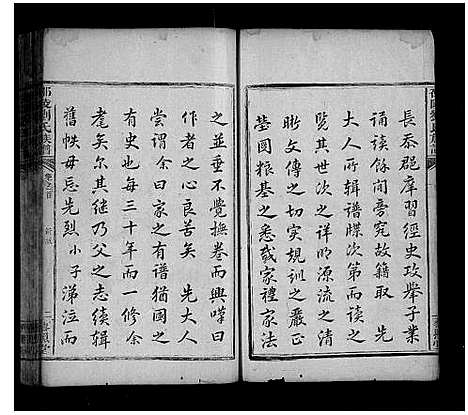 長泰邑庠習經史攻舉子業
誦讀餘閒旁究故籍取　先
大人所輯譜牒次第而讀之
覽其世次之詳明源流之清
晰文傳之切實規訓之嚴正
塋圖糧基之悉載家禮家法
之並垂不覺撫卷而興嘆曰
作者之心良苦矣　先大人
嘗謂余曰家之有譜猶國之
有史也每三十年而一修余
耄矣尔其繼乃父之志續輯
舊帙毋忘先烈小子涕泣而
邵陵劉氏族譜
卷之首